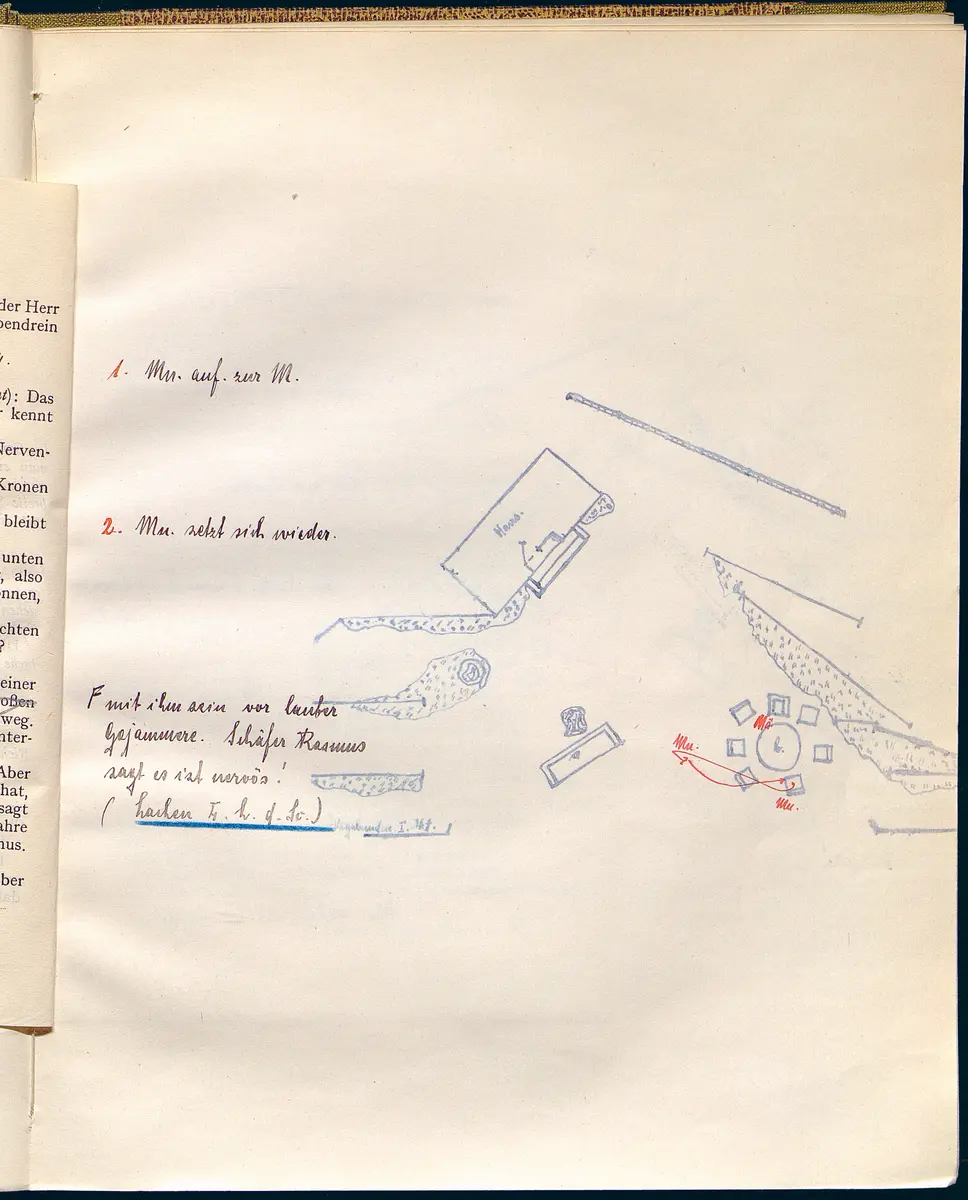 der Herr
bendrein
t): Das
kennt
Nerven-
Kronen
bleibt
unten
, also
nnen,
chten
?
einer
oßen
weg.
nter-
Aber
hat,
sagt
ahre
nus.
ber
1. Mn. auf. zur M.
2. Mn. setzt sich wieder.
F mit ihm sein vor lauter
Gejammere. Schäfer Rasmus
sagt es ist nervös!
(Lachen
I. Akt.
Haus.
Mn.
Mn.